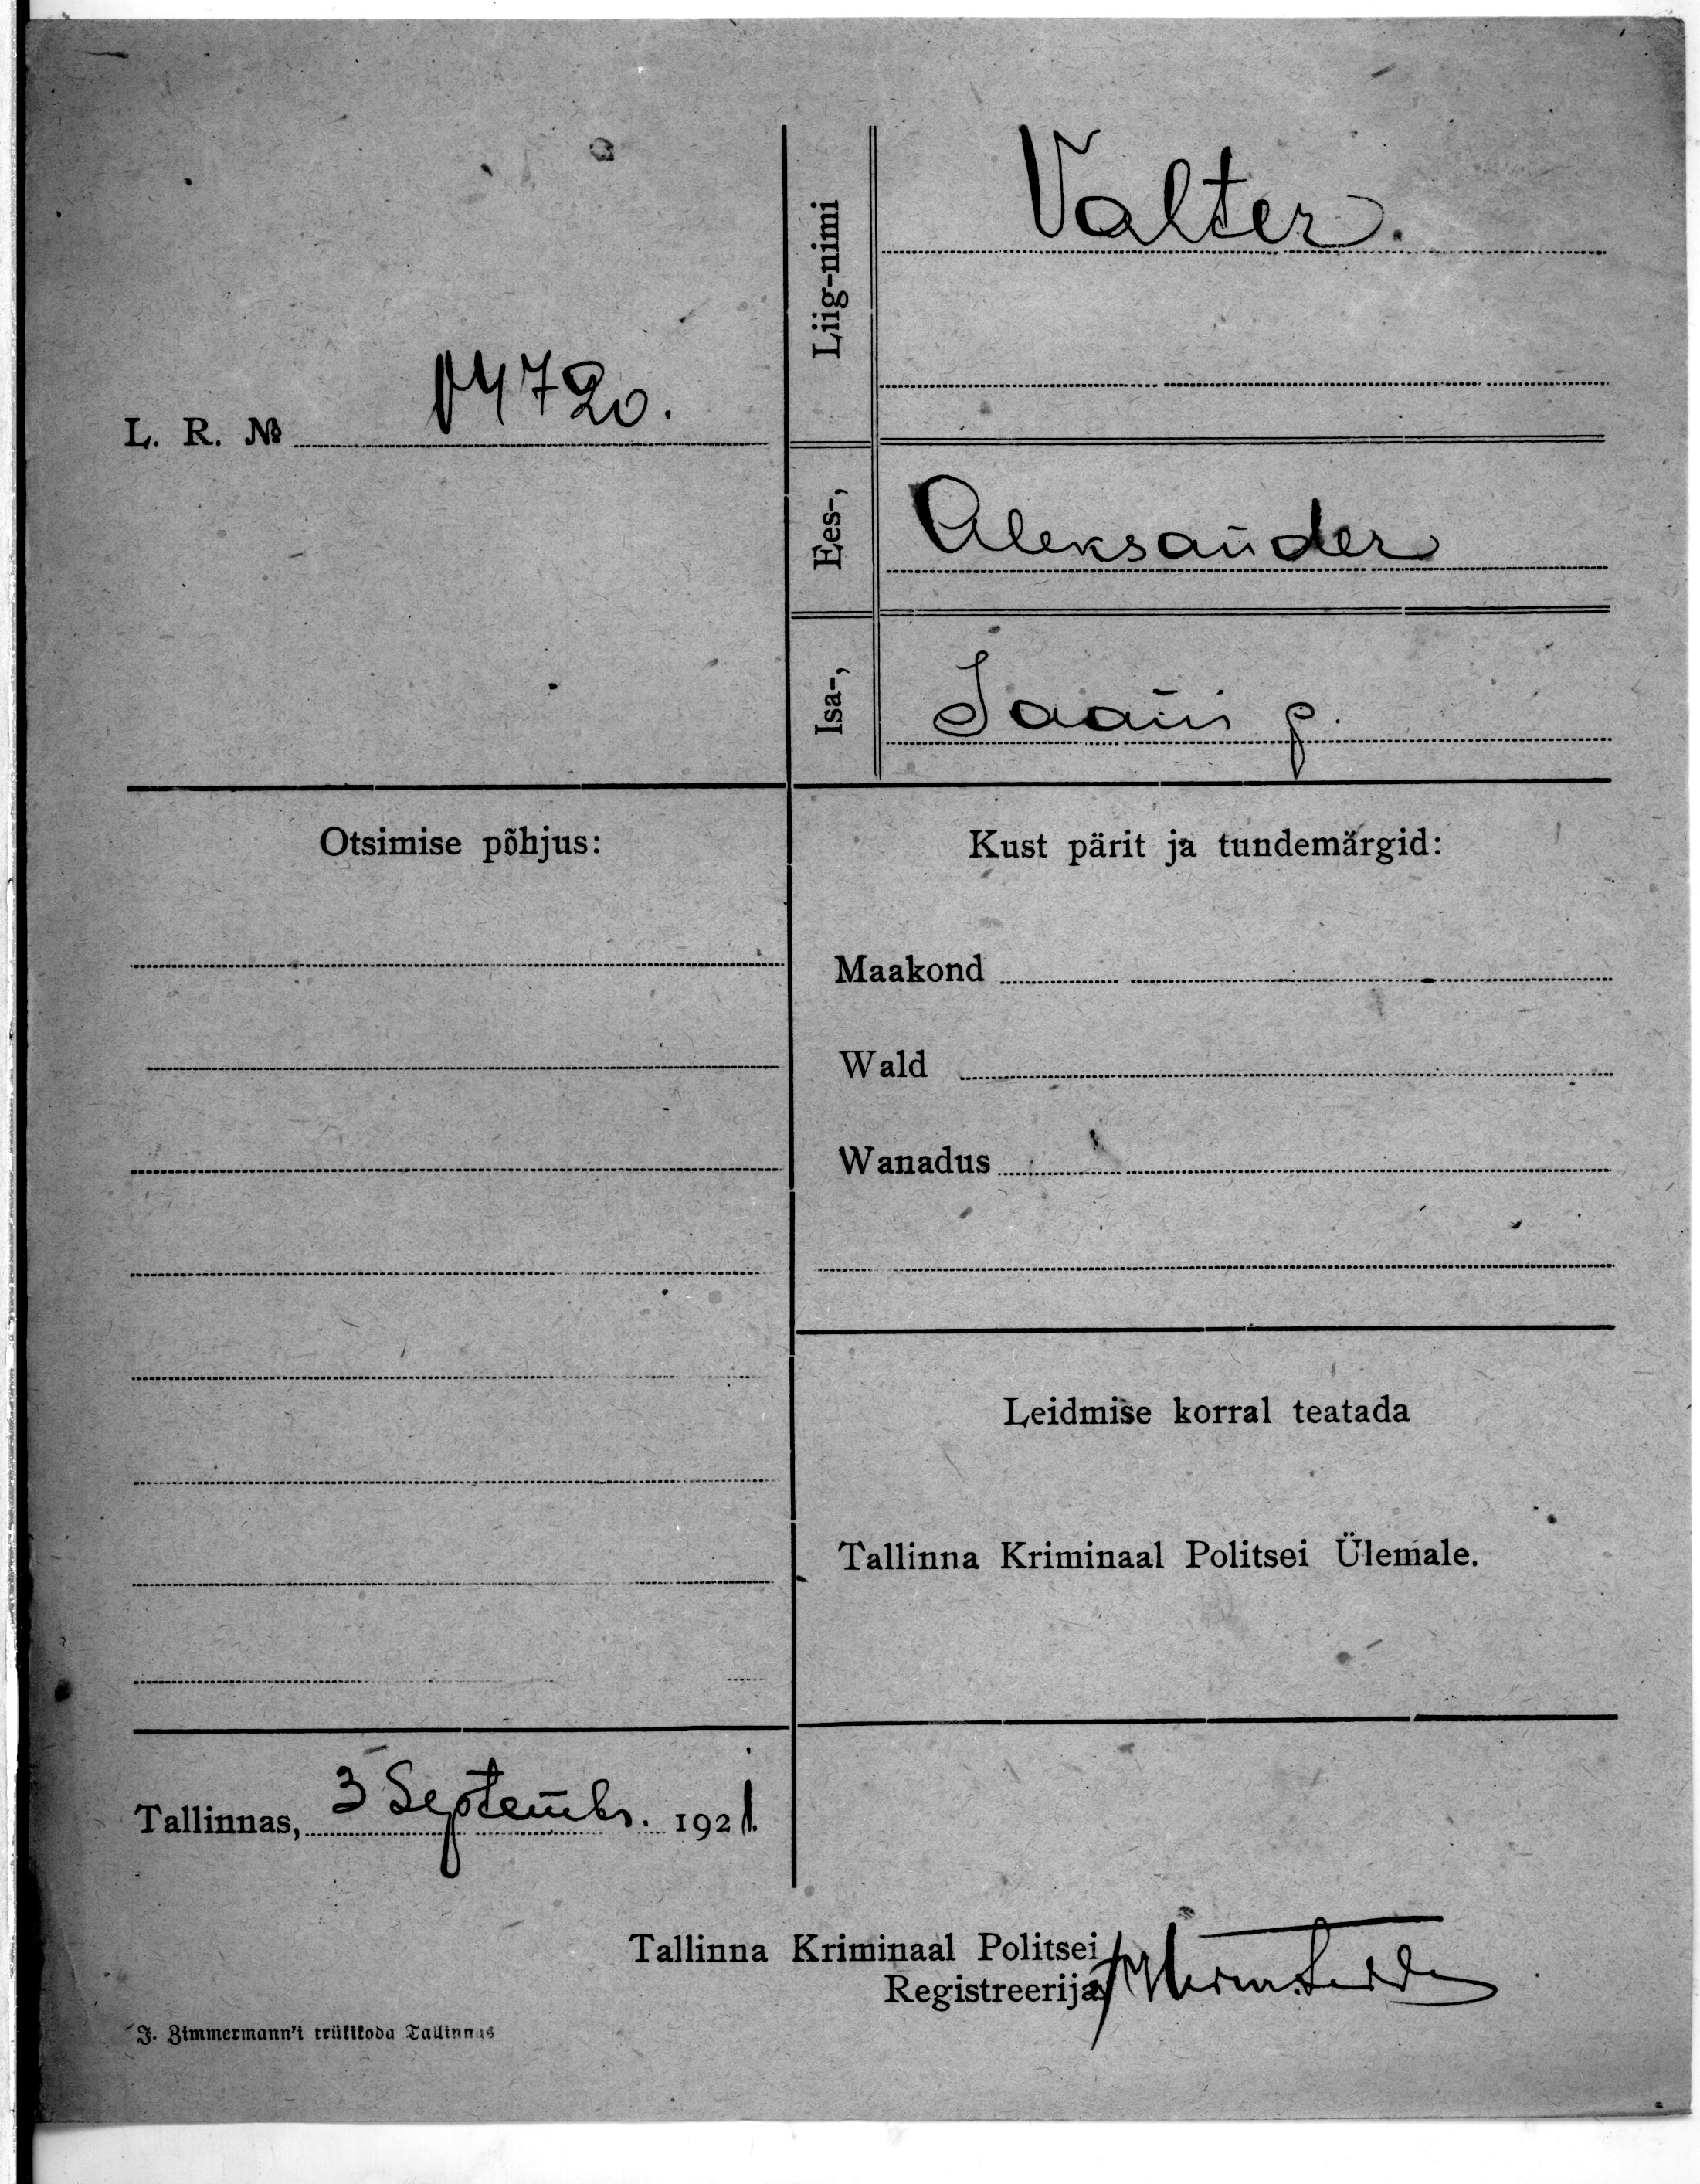 L. R. № 14720.
Liig-nimi
Valter.
Ees-,
Aleksander
Isa-,
Jaani p.
Otsimise põhjus:
Kust pärit ja tundemärgid:
Maakond
Wald
Wanadus
Leidmise korral teatada
Tallinna Kriminaal Politsei Ülemale.
Tallinnas, 3 Septembr. 1921.
Tallinna Kriminaal Politsei
Registreerija
J. Zimmermann'i trükikoda Tallinnas